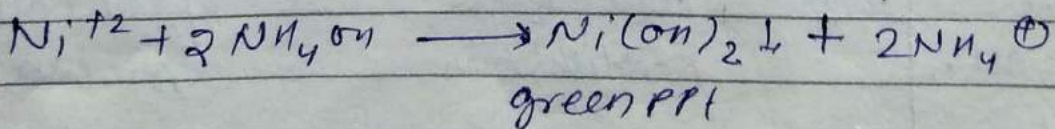 Ni⁺² + 2NH₄OH ⟶ Ni(OH)₂↓ + 2NH₄⊕
green ppt